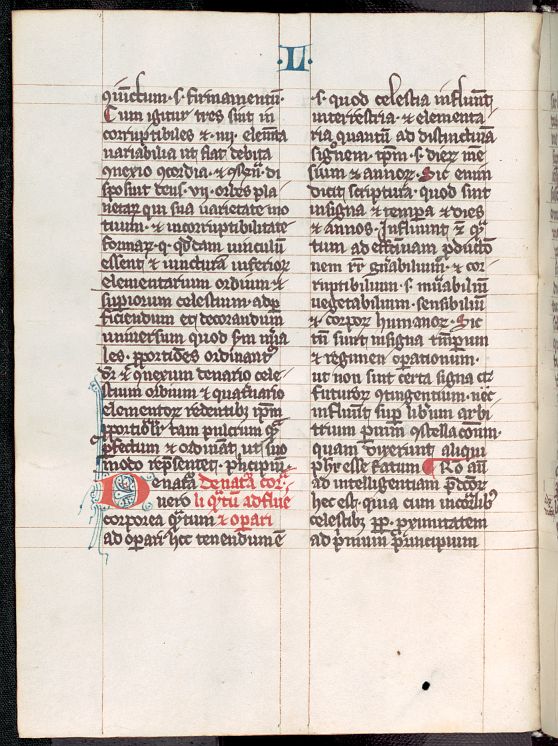 ·L·
ꝯiūctum·s·firmamentū·
Cum igitur tres sint in
corruptibiles ⁊·iiii·elem̄ta
uariabilia ut fiat debita
ꝯnexio ꝯcordia·⁊
sposuit deus·vii·orbes pla
netaꝝ qui sua uarietate mo
tuum·⁊ incorruptibilitate
formaꝝ·q·qd̄dam uinculū
essent ⁊ iunctura inferioꝝ
elementarium orbium ⁊
sup̄iorum celestium·ad ꝑ
ficiendum et decorandum
uniuersum quod
les·ꝓportōes ordinant᷑
dr̄·⁊ ꝯnexum denario cele
stium orbium ⁊ quat͛nario
elementoꝝ redentibꝫ ip̄m
ꝓportiōalit͛ tam pulcrum
ꝑfectum ⁊ ordinatū ut suo
modo rep̄sentet·p̄ncipiū·
De natā de natā cor
uero li q̄tū ad flue
corporea q̄tum ⁊ oꝑari
ad oꝑari hec tenendum ē
·s·quod celestia influūt
in terrestria·⁊ elementa
ria quantū ad distinctiuā
sigōnem·tp̄m·s·dieꝝ mē
sium ⁊ annoꝝ· Sic enim
dicit scriptura·quod sint
in signa ⁊ tempora ⁊ dies
⁊ annos·Influunt
tum ad effectiuam ꝓductō
nem rr̄ gn̄abilium·⁊ cor
ruptibilium·s·min̄abiliū
uegetabilium·sensibiliū
⁊ corpoꝝ humanoꝝ·Sic
tn̄ sunt in signa tm̄porum
⁊ regimen oꝑationum·
ut non sint certa signa
futuroꝝ ꝯtingentium·nec
influūt suꝑ lib͛um arbi
trium ꝑ uim ꝯstellaconum·
quam dixerunt aliqui
ph̄i esse fatum ¶ Rō aūt
ad intelligentiam p̄dcoꝝ
hec est·quia cum in corꝑibꝫ
celestibꝫ ꝓp·ꝓximitatem
ad p̄mum p̄incipium